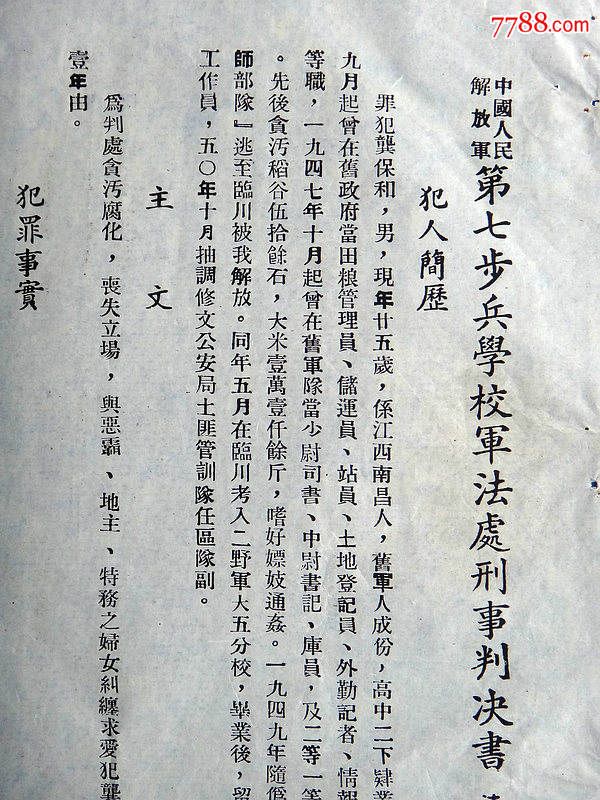 7788.com
中國人民
解放軍
第七步兵學校軍法處刑事判决書
犯人簡歷
罪犯龔保和，男，現年廿五歲，係江西南昌人，舊軍人成份，高中二下肄業
九月起曾在舊政府當田粮管理員、儲運員、站員、土地登記員、外勤記者、情報
等職，一九四七年十月起曾在舊軍隊當少尉司書、中尉書記、庫員，及二等一等
。先後貪汚稻谷伍拾餘石，大米壹萬壹仟餘斤，嗜好嫖妓通姦。一九四九年隨僞
師部隊』逃至臨川被我解放。同年五月在臨川考入二野軍大五分校，畢業後，留
工作員，五〇年十月抽調修文公安局土匪管訓隊任區隊副。
主文
爲判處貪汚腐化，喪失立場，與惡霸、地主、特務之婦女糾纏求愛犯龔
壹年由。
犯罪事實